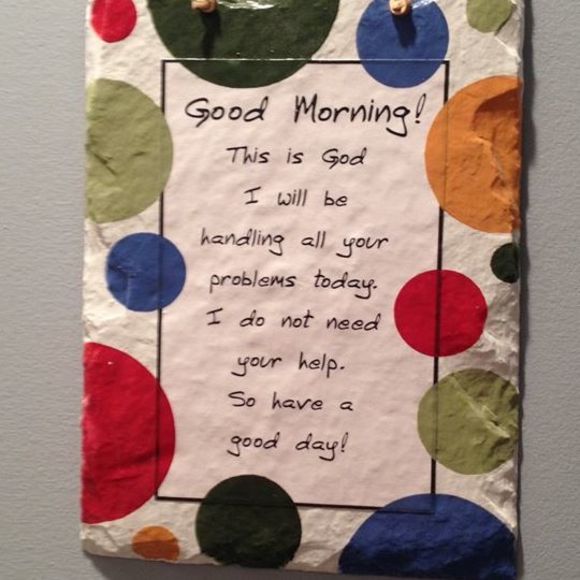 Good Morning!
This is God
I will be
handling all your
problems today.
I do not need
your help.
So have a
good day!